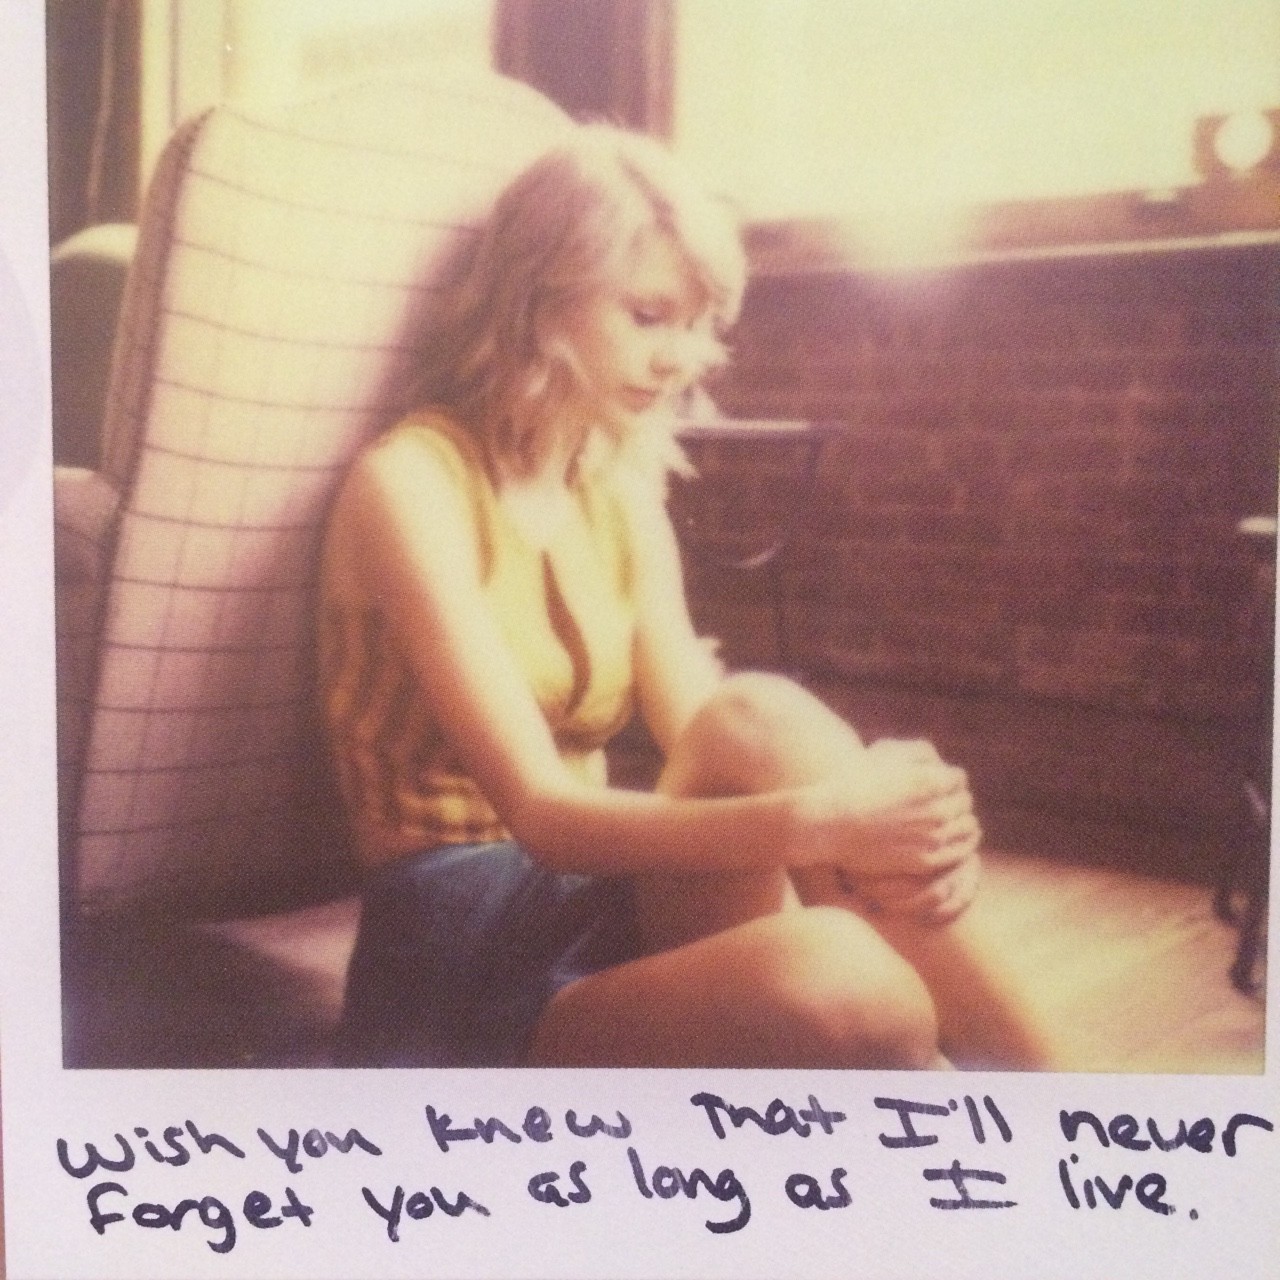 Wish you knew that I'll never
forget you as long as I live.